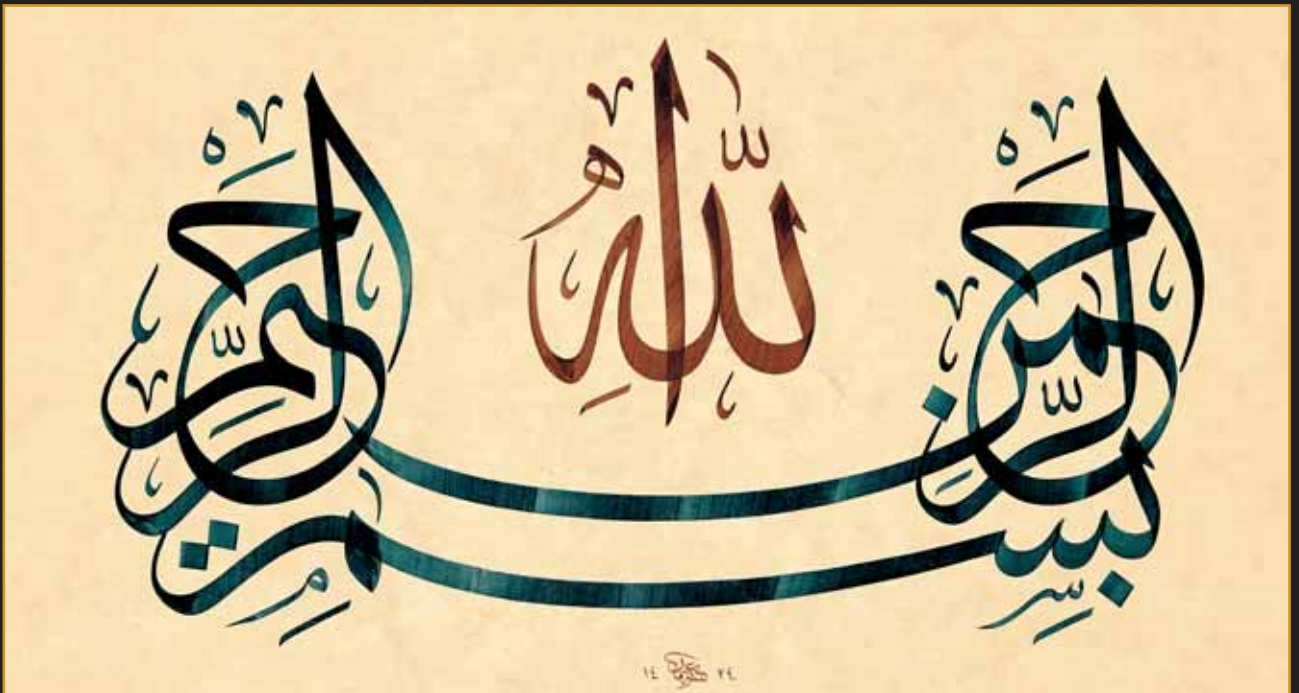 بِسْمِ اللهِ الرَّحْمٰنِ الرَّحِيمِ
١٤ ٣٤